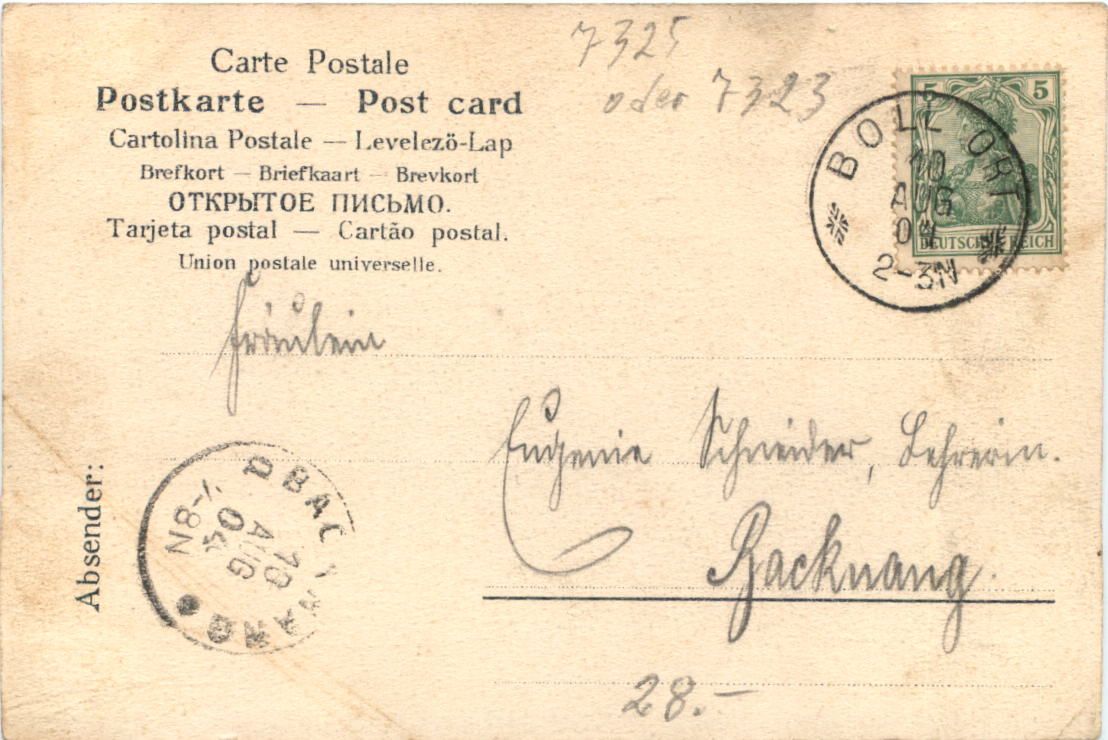 7325
oder 7323
Carte Postale
Postkarte — Post card
Cartolina Postale — Levelezö-Lap
Brefkort — Briefkaart — Brevkort
ОТКРЫТОЕ ПИСЬМО.
Tarjeta postal — Cartão postal.
Union postale universelle.
5 5
DEUTSCHES REICH
BOLL ORT
10
AUG
04
2-3N
Fräulein
Eugenie Schneider, Lehrerin.
Backnang.
Absender:
BAC NANG
10
AUG
04
7-8N
28.-